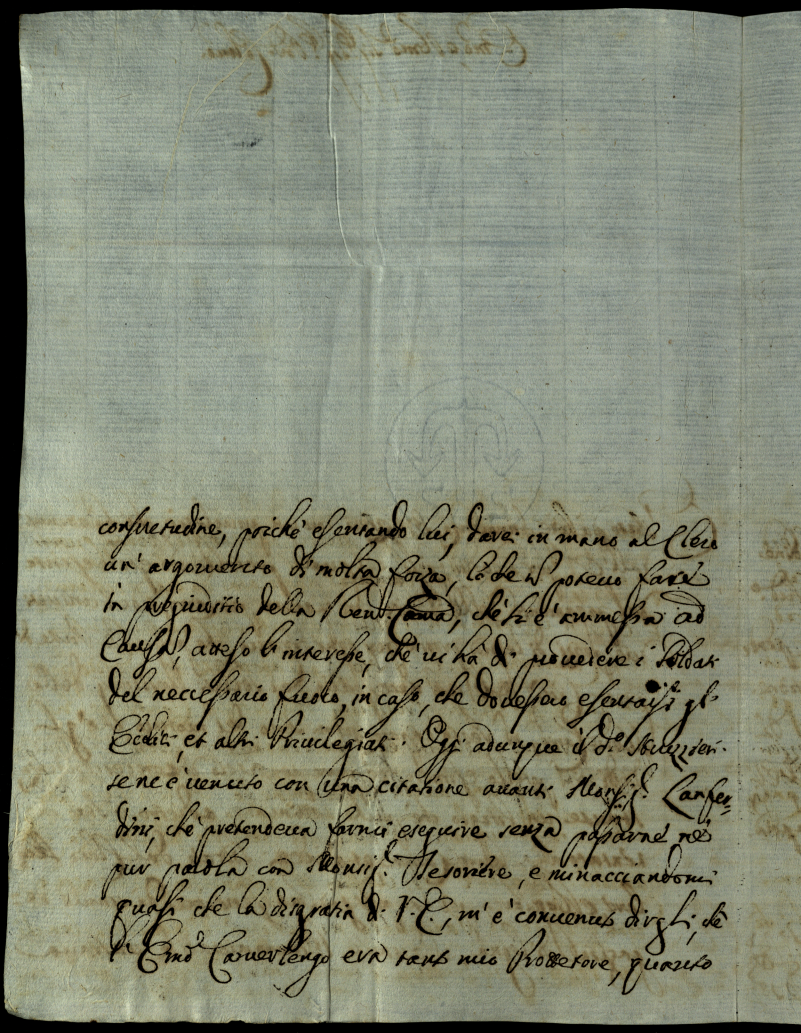 consuetudine, poiche esentando lui, darei in mano al Clero
un' argomento di molta forza, lo che n potevo fare
in pregiuditio della Revd. Cama, che si è ammessa ad
Causã, atteso l'interesse, che vi hà di provedere i Soldati
del necessario fuoco, in caso, che dovessero esentarsi gl'
Ecclici, et altri Privilegiati. Oggi adunque il dº Struzzieri
se ne è venuto con una citazione avanti Monsigr. Lanfre=
dini, che pretendeva farmi eseguire senza passarne nè
pur parola con Monsigr. Tesoriere, e minacciandomi
quasi che la disgratia di V. E., m' è convenuto dirgli, che
l' Emo Camerlengo era tanto mio Protettore, quanto